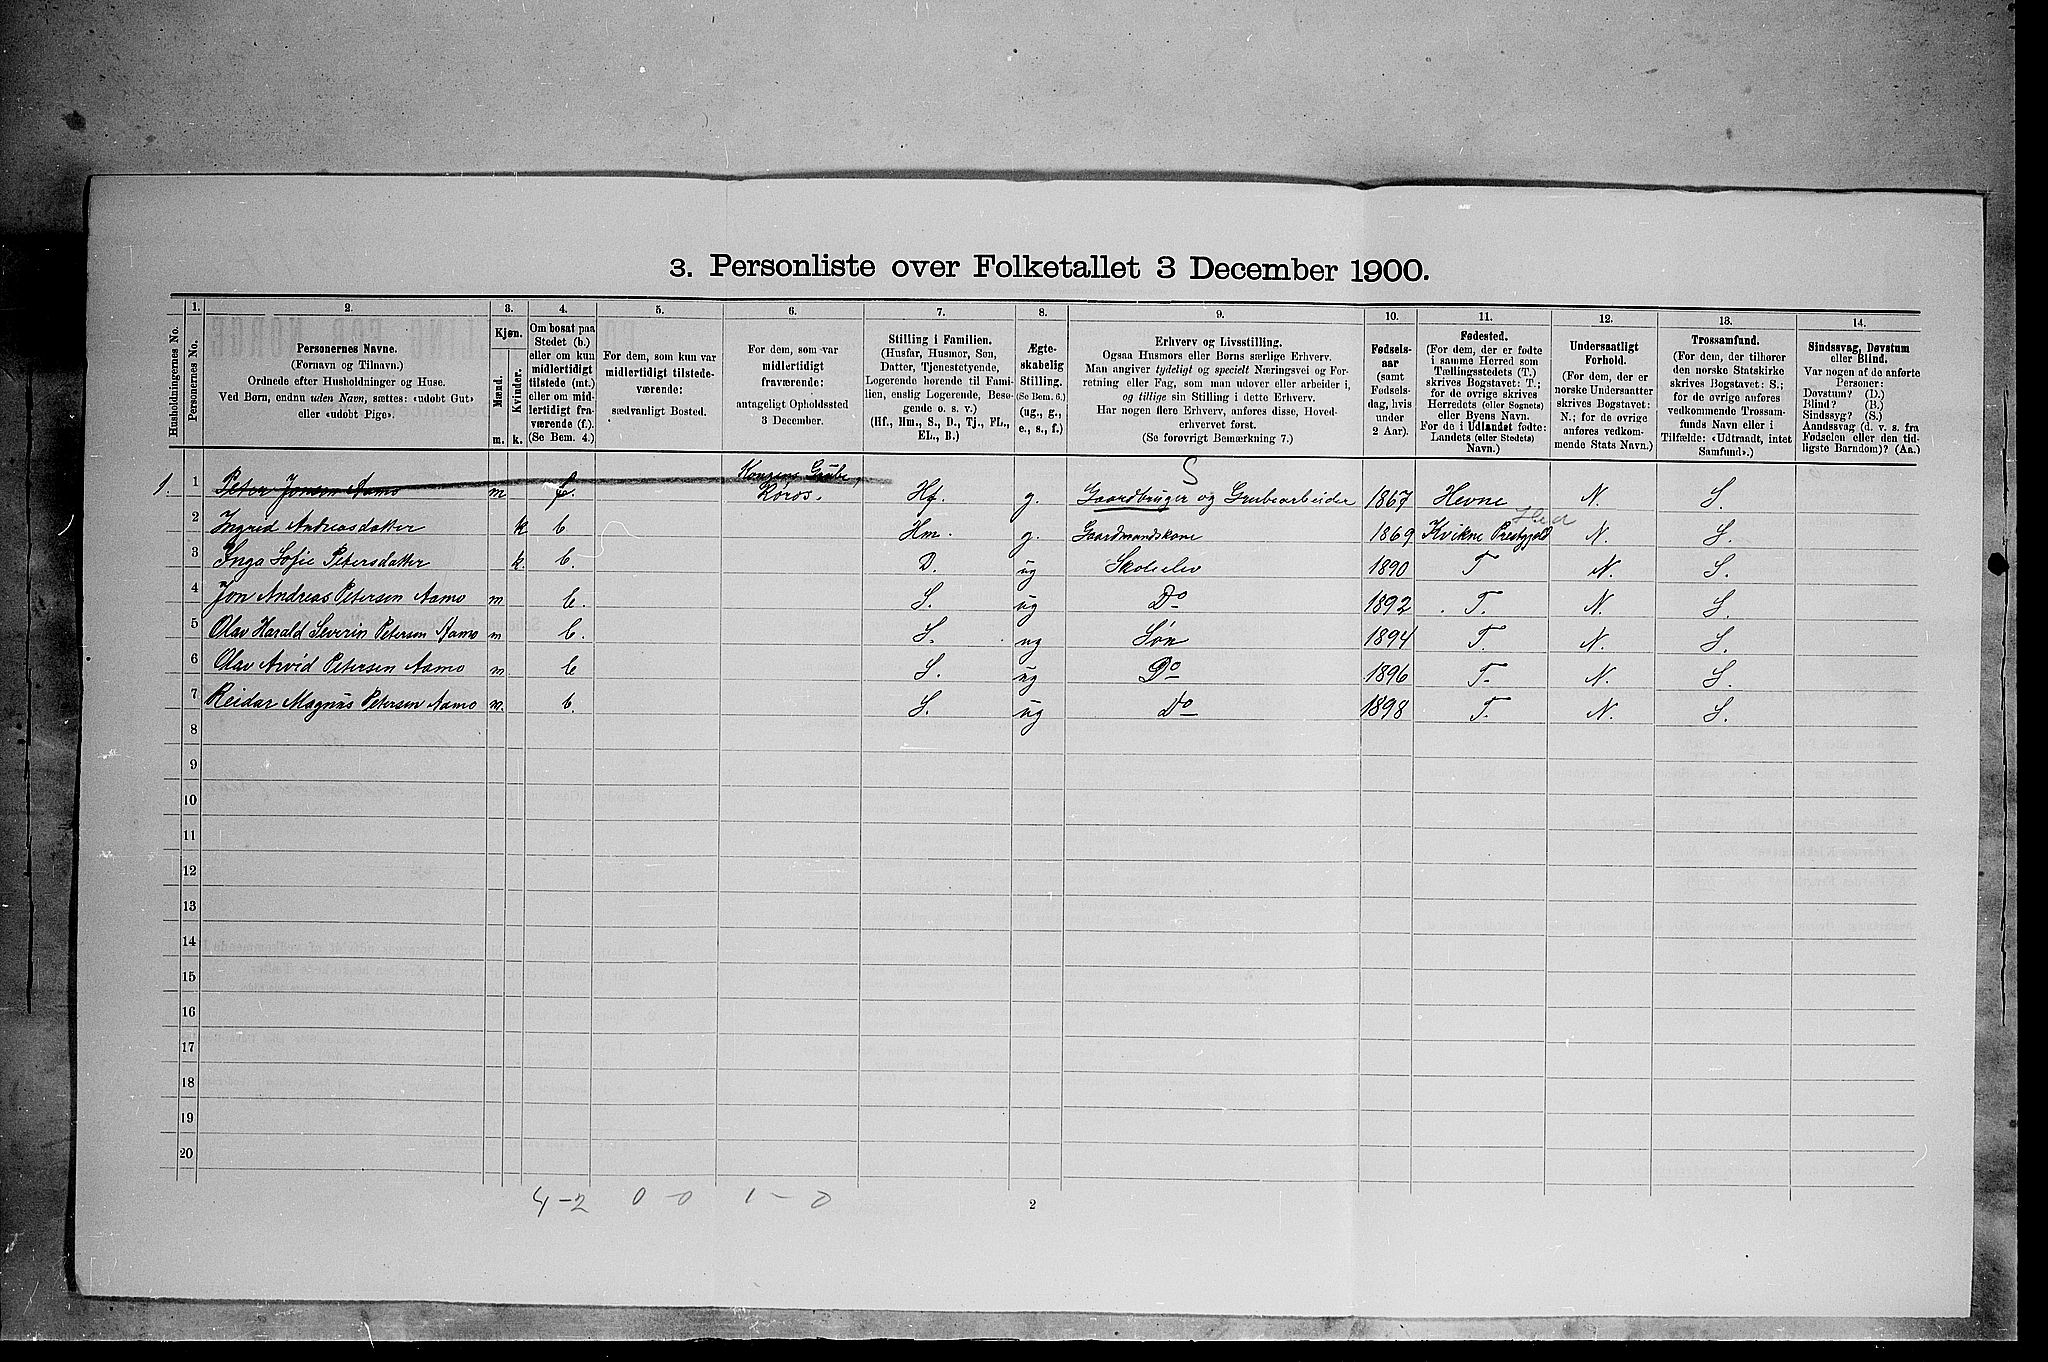 3. Personliste over Folketallet 3 December 1900.
1. 2. 3. 4. 5. 6. 7. 8. 9. 10. 11. 12. 13. 14.
Husholdningernes No.
Personernes No.
Personernes Navne.
(Fornavn og Tilnavn.)
Ordnede efter Husholdninger og Huse.
Ved Børn, endnu uden Navn, sættes: «udobt Gut»
eller «udobt Pige».
Kjøn.
Mænd.
Kvinder.
m. k.
Om bosat paa
Stedet (b.)
eller om kun
midlertidigt
tilstede (mt.)
eller om mid-
lertidigt fra-
værende (f.).
(Se Bem. 4.)
For dem, som kun var
midlertidigt tilstede-
værende:
sædvanligt Bosted.
For dem, som var
midlertidigt
fraværende:
antageligt Opholdssted
3 December.
Stilling i Familien.
(Husfar, Husmor, Søn,
Datter, Tjenestetyende,
Logerende hørende til Fami-
lien, enslig Logerende, Besø-
gende o. s. v.)
(Hf., Hm., S., D., Tj., FL.,
EL., B.)
Ægte-
skabelig
Stilling.
(Se Bem. 6.)
(ug., g.,
e., s., f.)
Erhverv og Livsstilling.
Ogsaa Husmors eller Børns særlige Erhverv.
Man angiver tydeligt og specielt Næringsvei og For-
retning eller Fag, som man udover eller arbeider i,
og tillige sin Stilling i dette Erhverv.
Har nogen flere Erhverv, anføres disse, Hoved-
erhvervet først.
(Se forøvrigt Bemærkning 7.)
Fødsels-
aar
(samt
Fødsels-
dag, hvis
under
2 Aar).
Fødested.
(For dem, der er fødte
i samme Herred som
Tællingsstedets (T.)
skrives Bogstavet: T.;
for de øvrige skrives
Herredets (eller Sognets)
eller Byens Navn.
For de i Udlandet fødte:
Landets (eller Stedets)
Navn.)
Undersaatligt
Forhold.
(For dem, der er
norske Undersaatter
skrives Bogstavet:
N.; for de øvrige
anføres vedkom-
mende Stats Navn.)
Trossamfund.
(For dem, der tilhører
den norske Statskirke
skrives Bogstavet: S.;
for de øvrige anføres
vedkommende Trossam-
funds Navn eller i
Tilfælde: «Udtraadt, intet
Samfund».)
Sindssvag, Døvstum
eller Blind.
Var nogen af de anførte
Personer:
Døvstum? (D.)
Blind? (B.)
Sindssyg? (S.)
Aandssvag (d. v. s. fra
Fødselen eller den tid-
ligste Barndom)? (Aa.)
Kongens Grube, S
1. 1 Peter Jonsen Aamo m f. Røros. Hf. g. Gaardbruger og Grubearbeider 1867 Hevne N. S.
Hed
2 Ingrid Andreasdatter k b Hm. g. Gaardmandskone 1869 Kvikne Prestgjeld N. S.
3 Inga Sofie Petersdatter k. b. D. ug Skoleelev 1890 T N. S.
4 Jon Andreas Petersen Aamo m b. S. ug Do 1892 T. N. S.
5 Olav Harald Severin Petersen Aamo m b. S. ug Søn 1894 T. N. S.
6 Olav Arvid Petersen Aamo m. b S. ug Do 1896 T. N. S.
7 Reidar Magnus Petersen Aamo m. b. S. ug Do 1898 T. N. S.
8
9
10
11
12
13
14
15
16
17
18
19
20
4-2 0-0 1-0
2